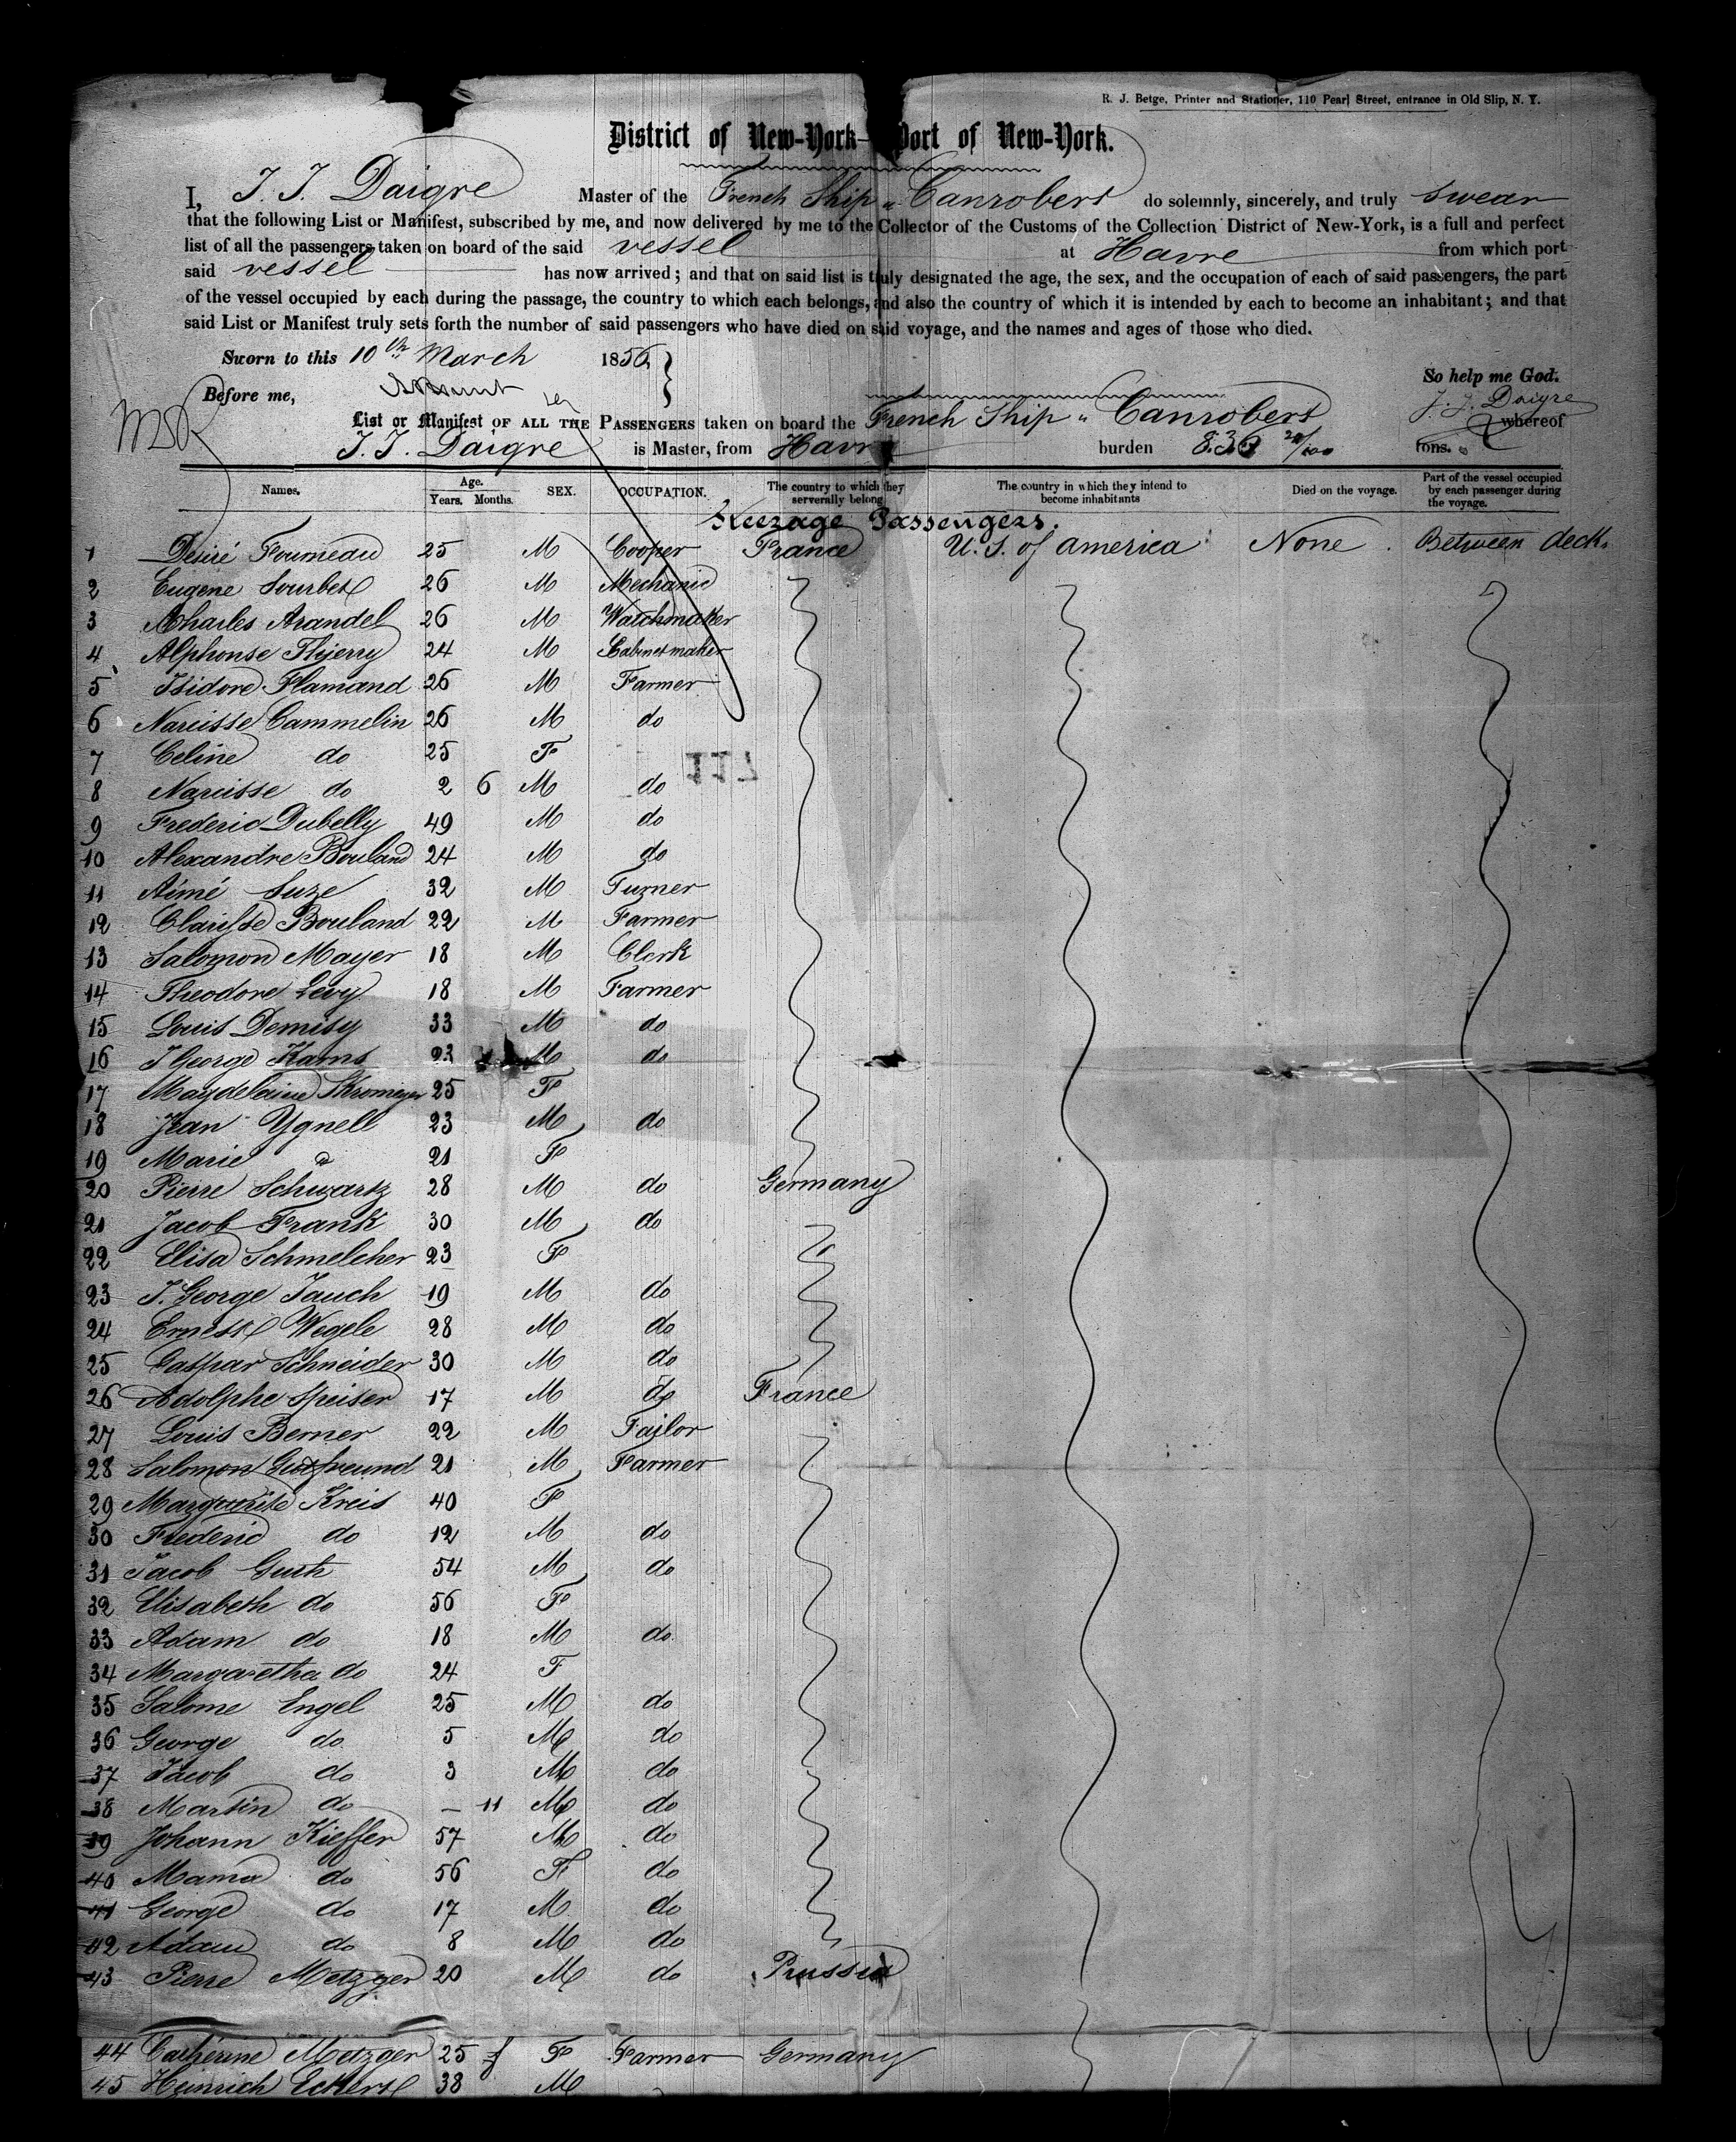 R. J. Betge, Printer and Stationer, 110 Pearl Street, entrance in Old Slip, N. Y.
District of New-York - Port of New-York.
I, J. J. Daigre Master of the French Ship " Canrobert do solemnly, sincerely, and truly swear
that the following List or Manifest, subscribed by me, and now delivered by me to the Collector of the Customs of the Collection District of New-York, is a full and perfect
list of all the passengers taken on board of the said vessel at Havre from which port
said vessel has now arrived; and that on said list is truly designated the age, the sex, and the occupation of each of said passengers, the part
of the vessel occupied by each during the passage, the country to which each belongs, and also the country of which it is intended by each to become an inhabitant; and that
said List or Manifest truly sets forth the number of said passengers who have died on said voyage, and the names and ages of those who died.
Sworn to this 10th March 1856
So help me God.
Before me,
J. J. Daigre
List or Manifest OF ALL THE PASSENGERS taken on board the French Ship " Canrobert whereof
J. J. Daigre is Master, from Havre burden 836 20/100 tons.
Names. Age. Years. Months. SEX. OCCUPATION. The country to which they serverally belong The country in which they intend to become inhabitants Died on the voyage. Part of the vessel occupied by each passenger during the voyage.
Steerage Passengers.
1 Désiré Fourneau 25 M Cooper France U. S. of America None Between deck
2 Eugene Sourbet 26 M Mechanic
3 Charles Arandel 26 M Watchmaker
4 Alphonse Thierry 24 M Cabinetmaker
5 Isidore Flamand 26 M Farmer
6 Narcisse Cammelin 26 M do
7 Celine do 25 F
117
8 Narcisse do 2 6 M do
9 Frederic Dubelly 49 M do
10 Alexandre Bouland 24 M do
11 Aimé Suze 32 M Turner
12 Clarisse Bouland 22 M Farmer
13 Salomon Mayer 18 M Clerk
14 Theodore Levy 18 M Farmer
15 Louis Demisy 33 M do
16 J George Kams 23 M do
17 Magdelaine Stromeyer 25 F
18 Jean Ygnell 23 M do
19 Marie do 21 F
20 Pierre Schwartz 28 M do Germany
21 Jacob Frank 30 M do
22 Elisa Schmelcher 23 F
23 J. George Jauch 19 M do
24 Ernest Wegele 28 M do
25 Caspar Schneider 30 M do
26 Adolphe Speiser 17 M do France
27 Louis Berner 22 M Tailor
28 Salomon Gutfreund 21 M Farmer
29 Marguerite Kreis 40 F
30 Frederic do 12 M do
31 Jacob Guth 54 M do
32 Elisabeth do 56 F
33 Adam do 18 M do
34 Margaretha do 24 F
35 Salome Engel 25 M do
36 George do 5 M do
37 Jacob do 3 M do
38 Martin do — 11 M do
39 Johann Kieffer 57 M do
40 Mama do 56 F do
41 George do 17 M do
42 Adam do 8 M do
43 Pierre Metzger 20 M do Prussia
44 Catherine Metzger 25 F Farmer Germany
45 Heinrich Eckert 38 M